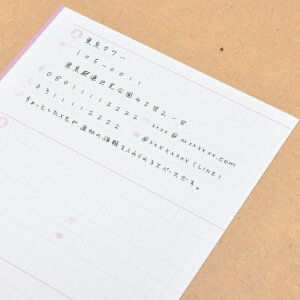 東京タワー
105-0011
東京都港区芝公園4丁目2-8
08011112222
xxxx@xxxxxxx.com
0311112222
@xxxxxxxxx(LINE)
ちょっとしたメモや 追加の情報を入れられるスペースです。